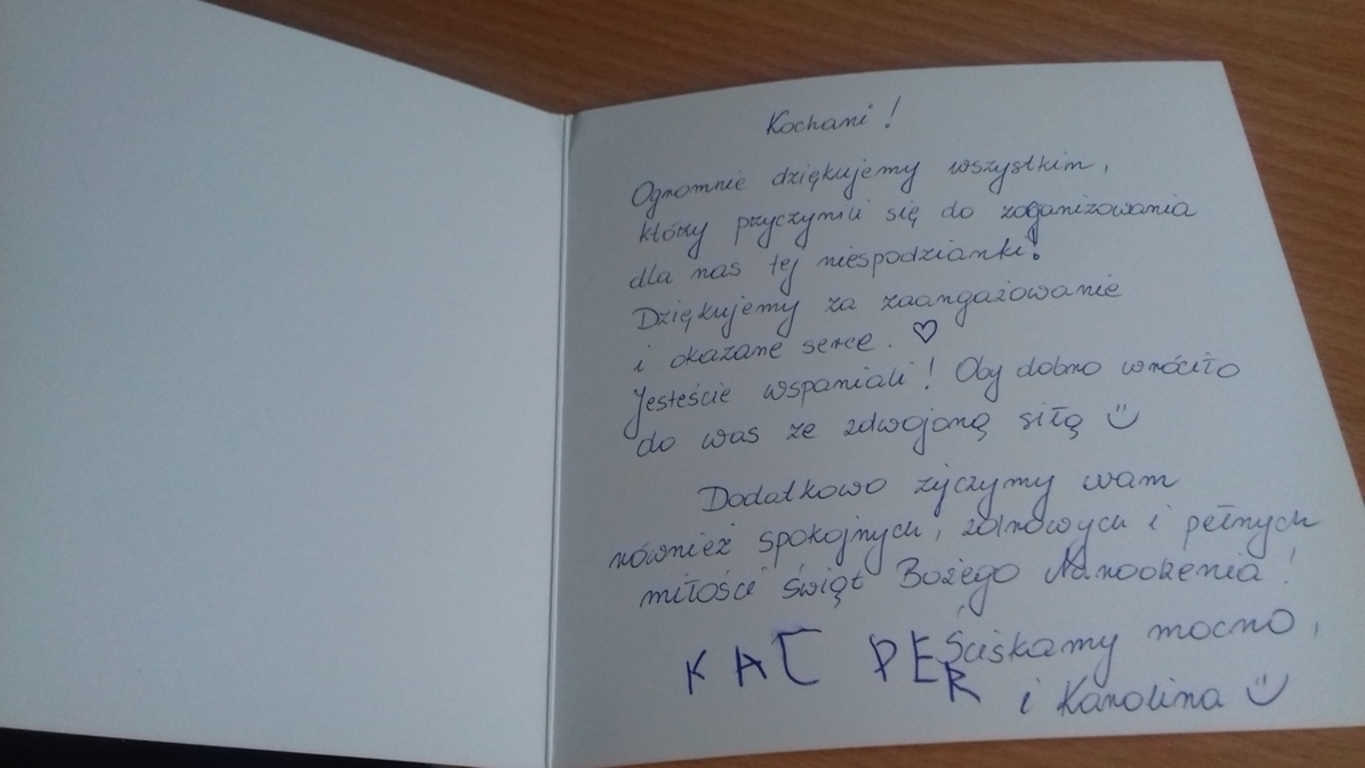 Kochani!
Ogromnie dziękujemy wszystkim,
którzy przyczynili się do zoganizowania
dla nas tej niespodzianki!
Dziękujemy za zaangażowanie
i okazane serce. ♡
Jesteście wspaniali! Oby dobro wróciło
do was ze zdwojoną siłą :)
Dodatkowo życzymy wam
również spokojnych, zdrowych i pełnych
miłości świąt Bożego Narodzenia!
Ściskamy mocno,
KACPER
i Karolina :)